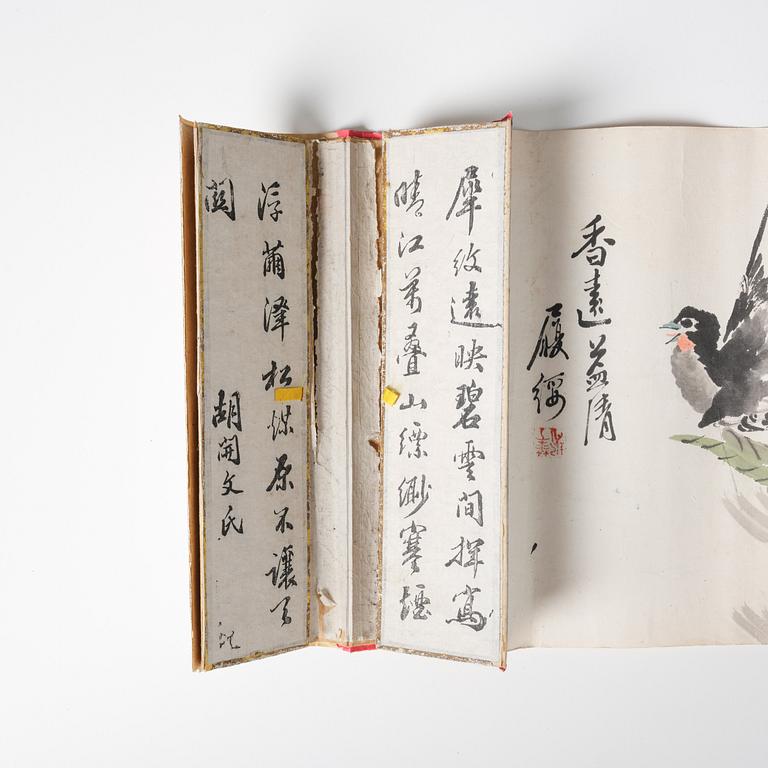 香遠益清
履綏
犀紋遠映碧雲間揮寫
晴江萬疊山縹緲寒煙
浮繭澤松煤原不讓于
闐
胡開文氏